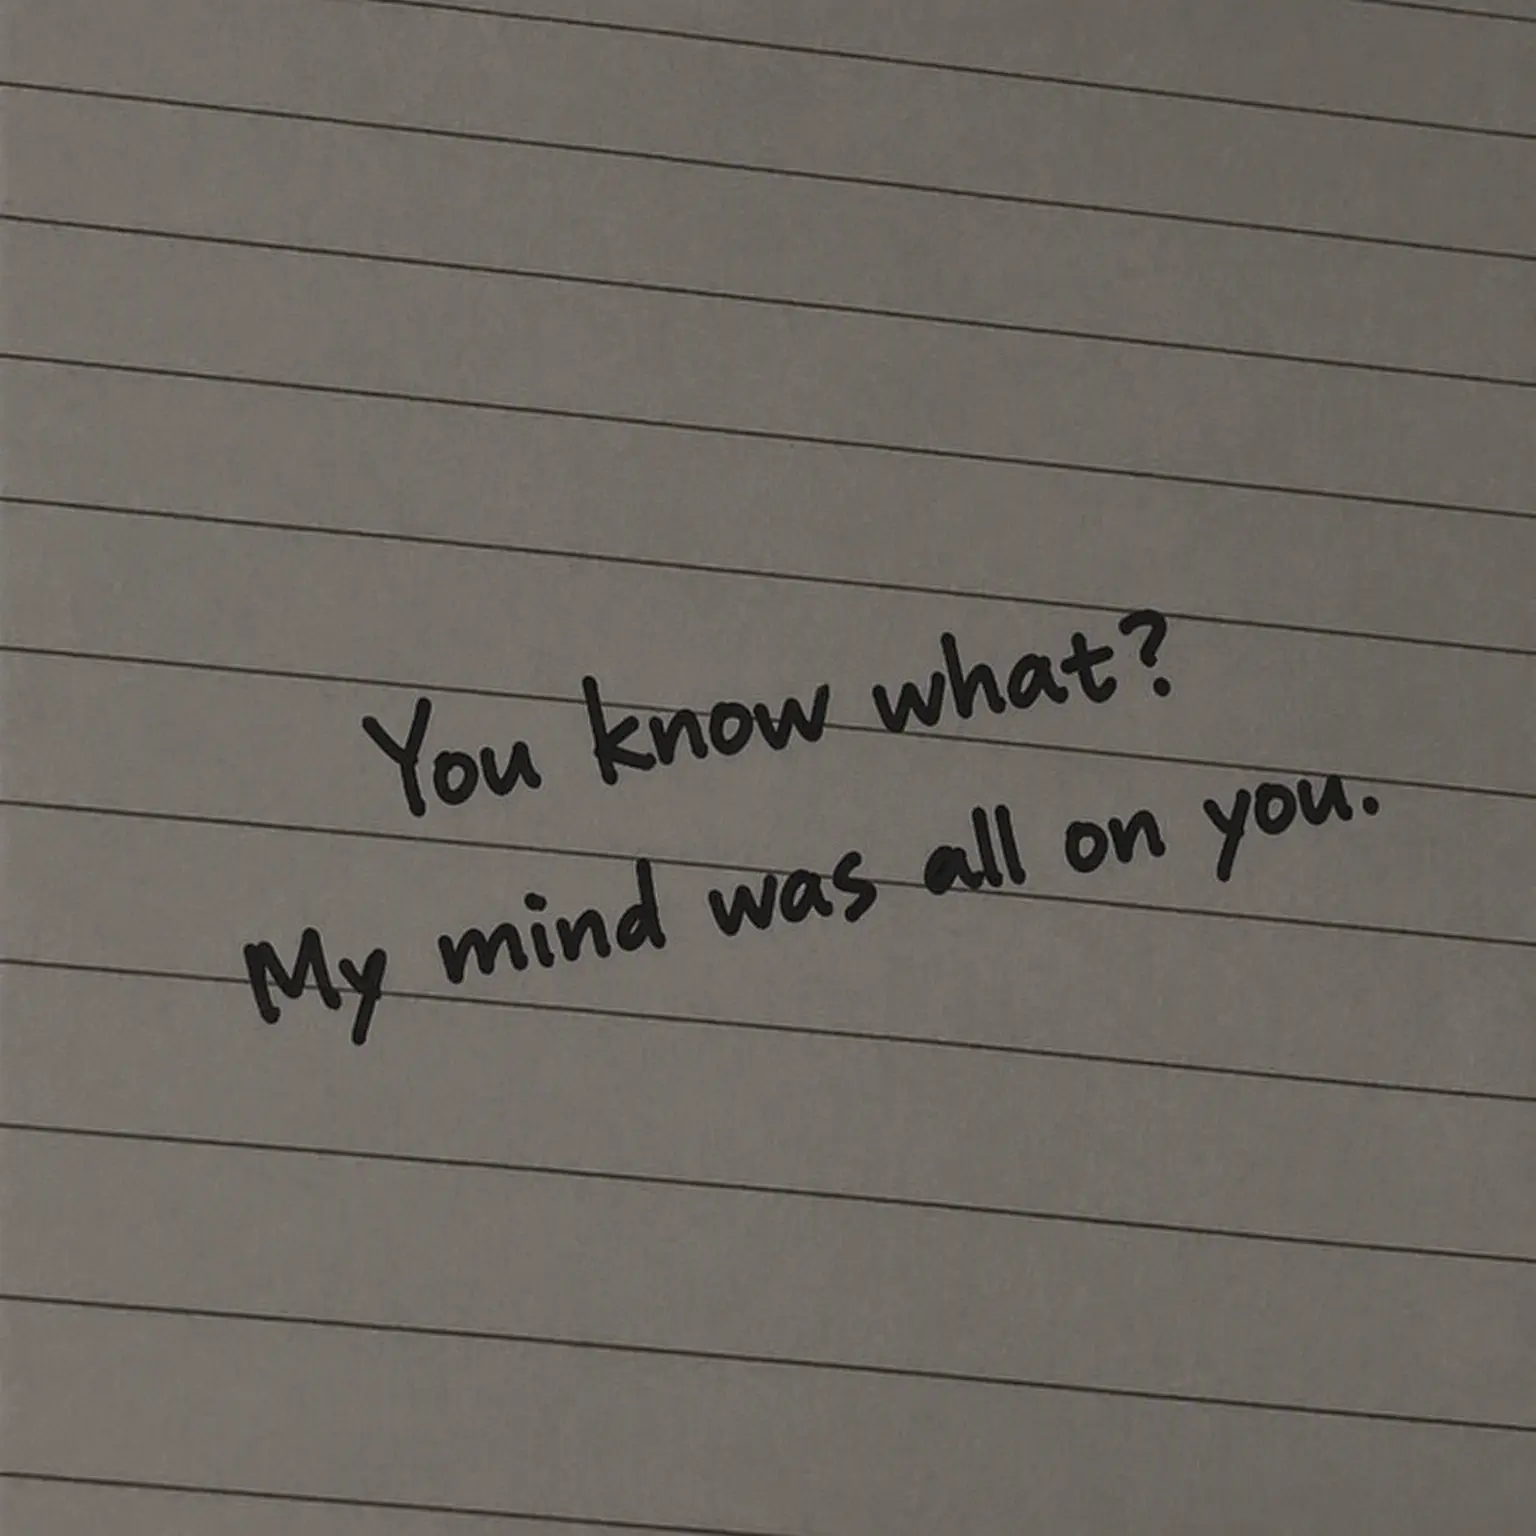 You know what?
My mind was all on you.